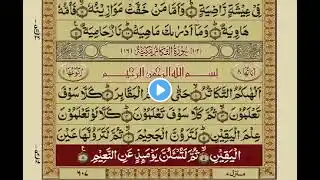 فِىْ عِيْشَةٍ رَّاضِيَةٍ ۝ وَاَمَّا مَنْ خَفَّتْ مَوَازِيْنُهٗ ۝ فَاُمُّهٗ
هَاوِيَةٌ ۝ وَمَآ اَدْرٰىكَ مَاهِيَهْ ۝ نَارٌ حَامِيَةٌ ۝
بِسْمِ اللهِ الرَّحْمٰنِ الرَّحِيْمِ
اَلْهٰىكُمُ التَّكَاثُرُ ۝ حَتّٰى زُرْتُمُ الْمَقَابِرَ ۝ كَلَّا سَوْفَ
تَعْلَمُوْنَ ۝ ثُمَّ كَلَّا سَوْفَ تَعْلَمُوْنَ ۝ كَلَّا لَوْ تَعْلَمُوْنَ
عِلْمَ الْيَقِيْنِ ۝ لَتَرَوُنَّ الْجَحِيْمَ ۝ ثُمَّ لَتَرَوُنَّهَا عَيْنَ
الْيَقِيْنِ ۝ ثُمَّ لَتُسْئَلُنَّ يَوْمَئِذٍ عَنِ النَّعِيْمِ ۝